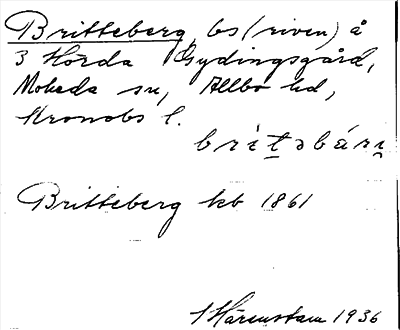 Britteberg, bs (riven) å
3 Horda Gydingsgård,
Moheda sn, Allbo hd,
Kronobs l.
britəbárɩ
Britteberg kb 1861
Härenstam 1936